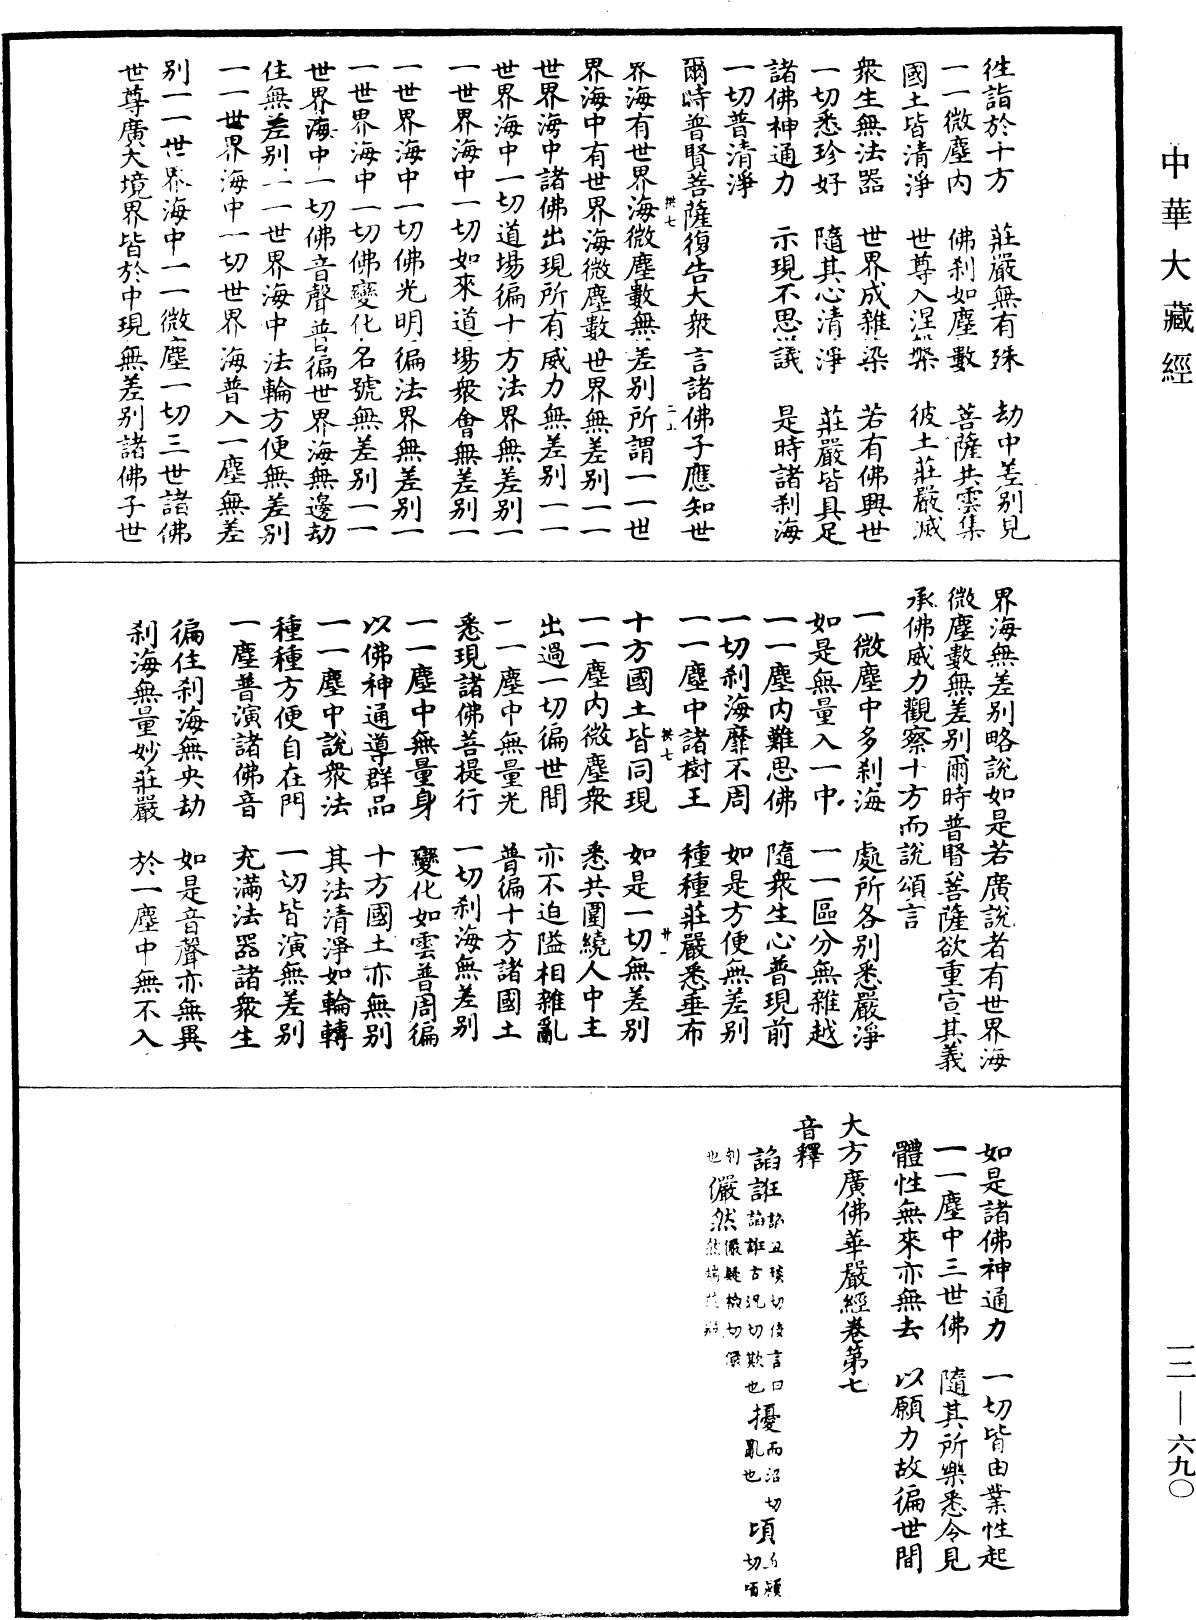 中華大藏經
徃詣於十方　莊嚴無有殊　劫中差別見
一一微塵內　佛刹如塵數　菩薩共雲集
國土皆清淨　世尊入涅槃　彼土莊嚴滅
衆生無法器　世界成雜染　若有佛興世
一切悉珍好　隨其心清淨　莊嚴皆具足
諸佛神通力　示現不思議　是時諸刹海
一切普清淨
爾時普賢菩薩復告大衆言諸佛子應知世
界海有世界海微塵數無差別所謂一一世
界海中有世界海微塵數世界無差別一一
世界海中諸佛出現所有威力無差別一一
世界海中一切道場徧十方法界無差別一
一世界海中一切如來道場衆會無差別一
一世界海中一切佛光明徧法界無差別一
一世界海中一切佛變化名號無差別一一
世界海中一切佛音聲普徧世界海無邊劫
住無差別一一世界海中法輪方便無差別
一一世界海中一切世界海普入一塵無差
別一一世界海中一一微塵一切三世諸佛
世尊廣大境界皆於中現無差別諸佛子世
界海無差別略說如是若廣說者有世界海
微塵數無差別爾時普賢菩薩欲重宣其義
承佛威力觀察十方而說頌言
一微塵中多刹海　處所各別悉嚴淨
如是無量入一中　一一區分無雜越
一一塵內難思佛　隨衆生心普現前
一切刹海靡不周　如是方便無差別
一一塵中諸樹王　種種莊嚴悉垂布
十方國土皆同現　如是一切無差別
一一塵內微塵衆　悉共圍繞人中主
出過一切徧世間　亦不迫隘相雜亂
一一塵中無量光　普徧十方諸國土
悉現諸佛菩提行　一切刹海無差別
一一塵中無量身　變化如雲普周徧
以佛神通導群品　十方國土亦無別
一一塵中說衆法　其法清淨如輪轉
種種方便自在門　一切皆演無差別
一塵普演諸佛音　充滿法器諸衆生
徧住刹海無央劫　如是音聲亦無異
刹海無量妙莊嚴　於一塵中無不入
如是諸佛神通力　一切皆由業性起
一一塵中三世佛　隨其所樂悉令見
體性無來亦無去　以願力故徧世間
大方廣佛華嚴經卷第七
音釋
諂誑諂丑琰切佞言曰諂誑古況切欺也擾而沼切亂也頃
儼然儼疑檢切儼
一二—六九〇